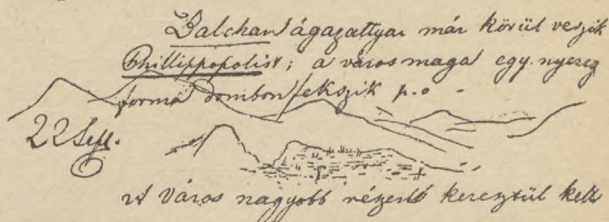 Balchan ágazattyai már körül veszik
Phillippopolist; a város maga egy nyereg
forma dombon fekszik p.o -
22 Sept.
A Város nagyobb részén keresztül kell